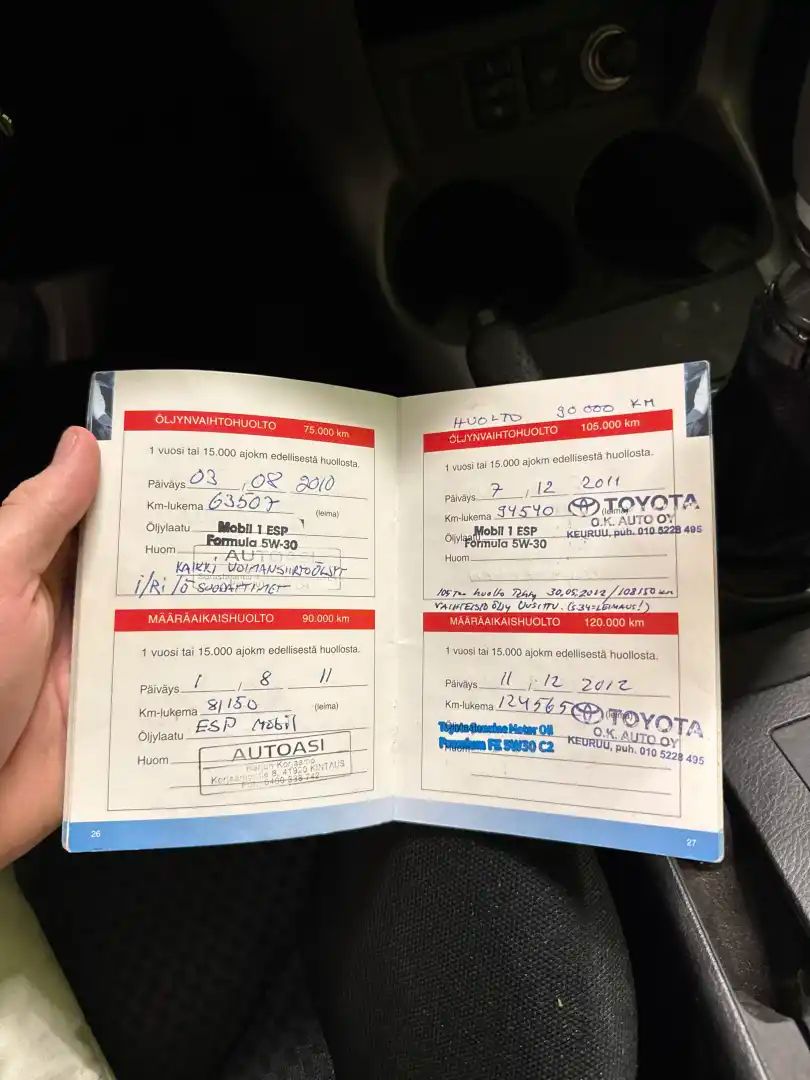 ÖLJYNVAIHTOHUOLTO 75.000 km
1 vuosi tai 15.000 ajokm edellisestä huollosta.
Päiväys 03 , 08 2010
Km-lukema 63507 (leima)
Öljylaatu Mobil 1 ESP
Formula 5W-30
Huom
KAIKKI VOIMANSIIRTOÖLJYT
i/Ri/Ö SUODATTIMET
MÄÄRÄAIKAISHUOLTO 90.000 km
1 vuosi tai 15.000 ajokm edellisestä huollosta.
Päiväys 1 / 8 11
Km-lukema 81150 (leima)
Öljylaatu ESP Mobil
Huom AUTOASI
Harjun Korjaamo
8, 41920 KINTAUS
26
HUOLTO 90 000 KM
ÖLJYNVAIHTOHUOLTO 105.000 km
1 vuosi tai 15.000 ajokm edellisestä huollosta.
Päiväys 7 , 12 2011
Km-lukema 94540 (leima) TOYOTA
O.K. AUTO OY
Öljylaatu Mobil 1 ESP KEURUU, puh. 010 5228 495
Formula 5W-30
Huom
105 Tkm huolto Tehty 30.05.2012/103150 km
VAIHTEISTO ÖLJY UUSITTU. (S34=LEIMAUS!)
MÄÄRÄAIKAISHUOLTO 120.000 km
1 vuosi tai 15.000 ajokm edellisestä huollosta.
Päiväys 11 . 12 2012
Km-lukema 124565 TOYOTA
Toyota Genuine Motor Oil O.K. AUTO OY
Premium FE 5W30 C2 KEURUU, puh. 010 5228 495
Huom
27